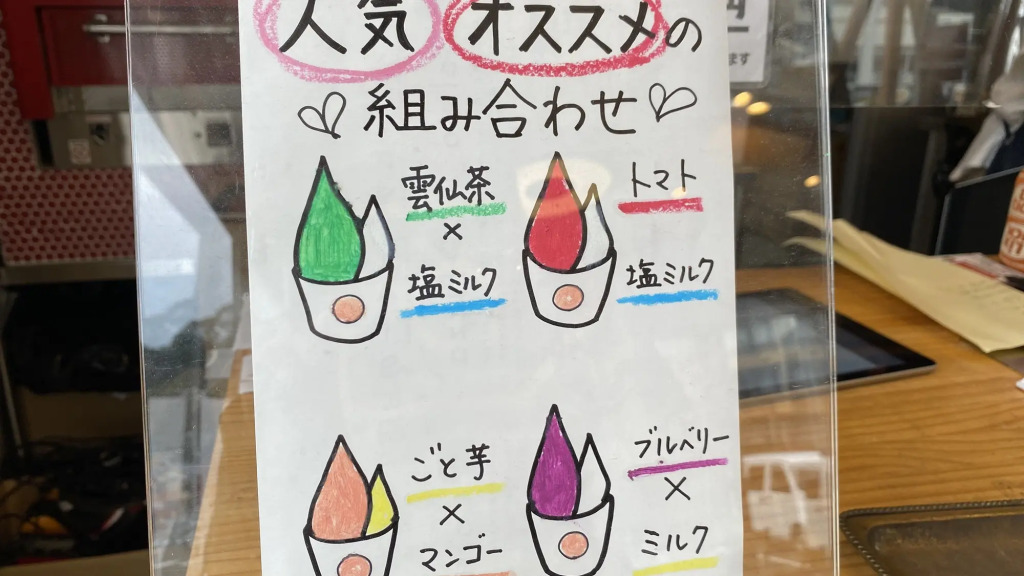 人気 オススメの
組み合わせ
雲仙茶
×
塩ミルク
トマト
塩ミルク
ごと芋
×
マンゴー
ブルベリー
×
ミルク
ます